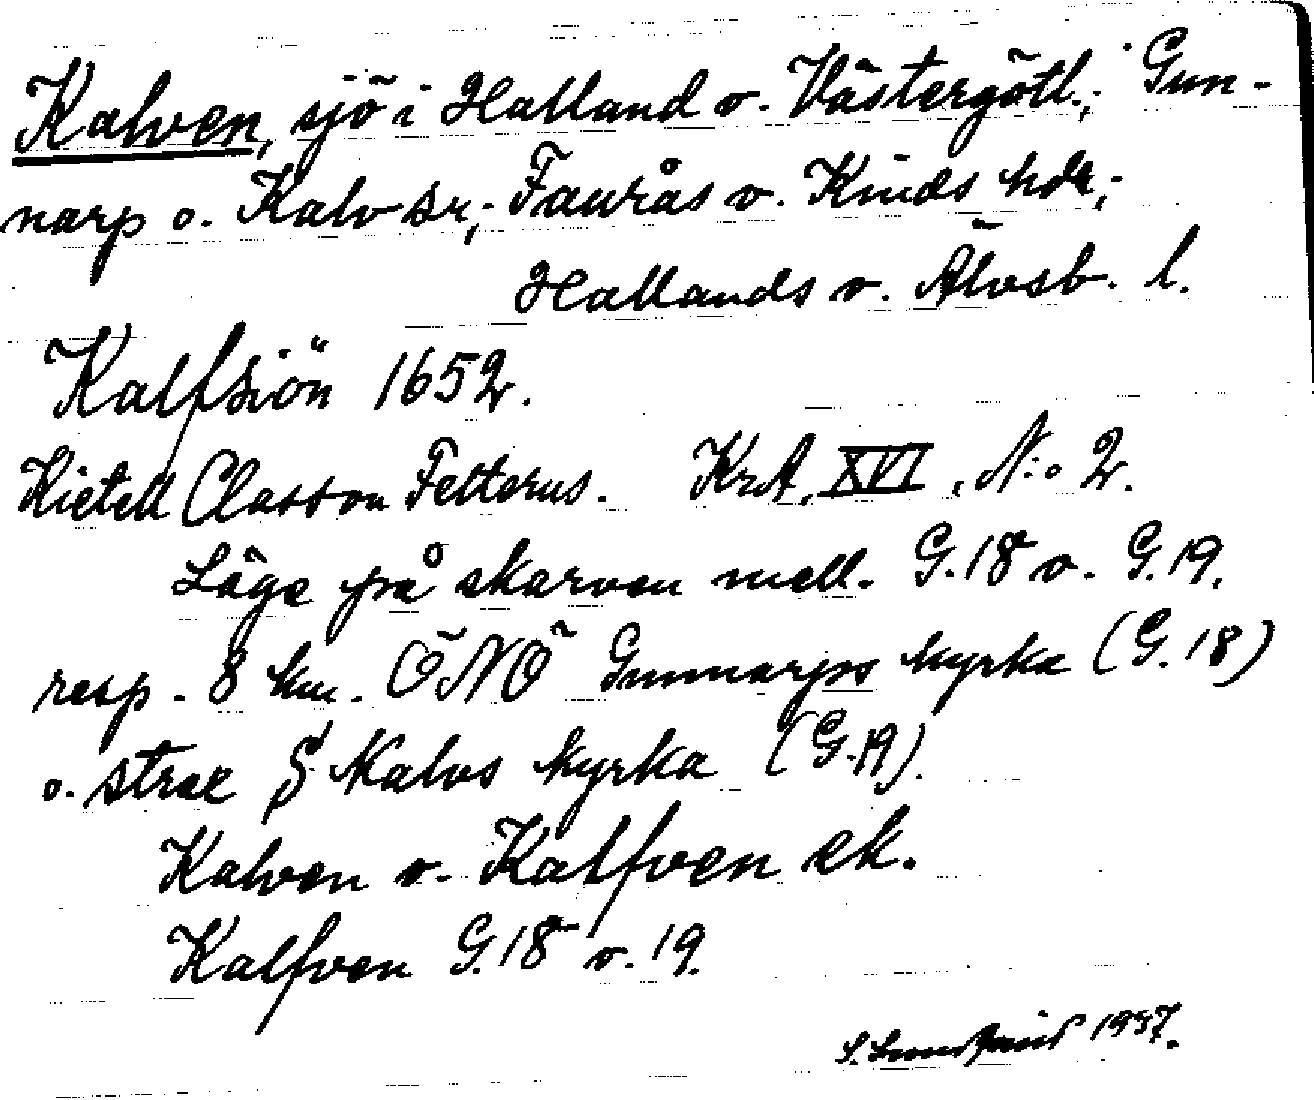 Kalven, sjö i Halland o. Västergötl.; Gun-
narp o. Kalv sr; Faurås o. Kinds hdr;
Hallands o. Älvsb. l.
Kalfsiön 1652.
Kietell Classon Felterus. KrA, XVI, N:o 2.
Läge på skarven mell. G.18 o. G.19.
resp. 8 km. ÖNÖ Gunnarps kyrka (G.18)
o. strax S Kalvs kyrka (G.19).
Kalven o. Kalfven ek.
Kalfven G.18 o. 19.
S. 1937.